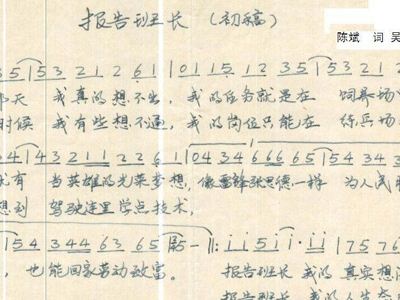 报告班长(初稿)
陈斌 词 吴
35|53 21 2 61|011 5 12 35|53 21 2
那天 我真的想不出,我的任务就是在 饲养场
时候 我有些想不通,我的岗位只能在 练兵场
24|43 21 1 2 2 6 1|04 34 6 6 6 65|54 34 3
有 当英雄的光荣梦想,像雷锋张思德一样 为人民
想到 驾驶 学点技术,
|54 344 63 65| 5 -‖: i i 5 i i· i i|7576
,也能回家劳动致富。 报告班长 我的 真实想
报告班长 我的 生态